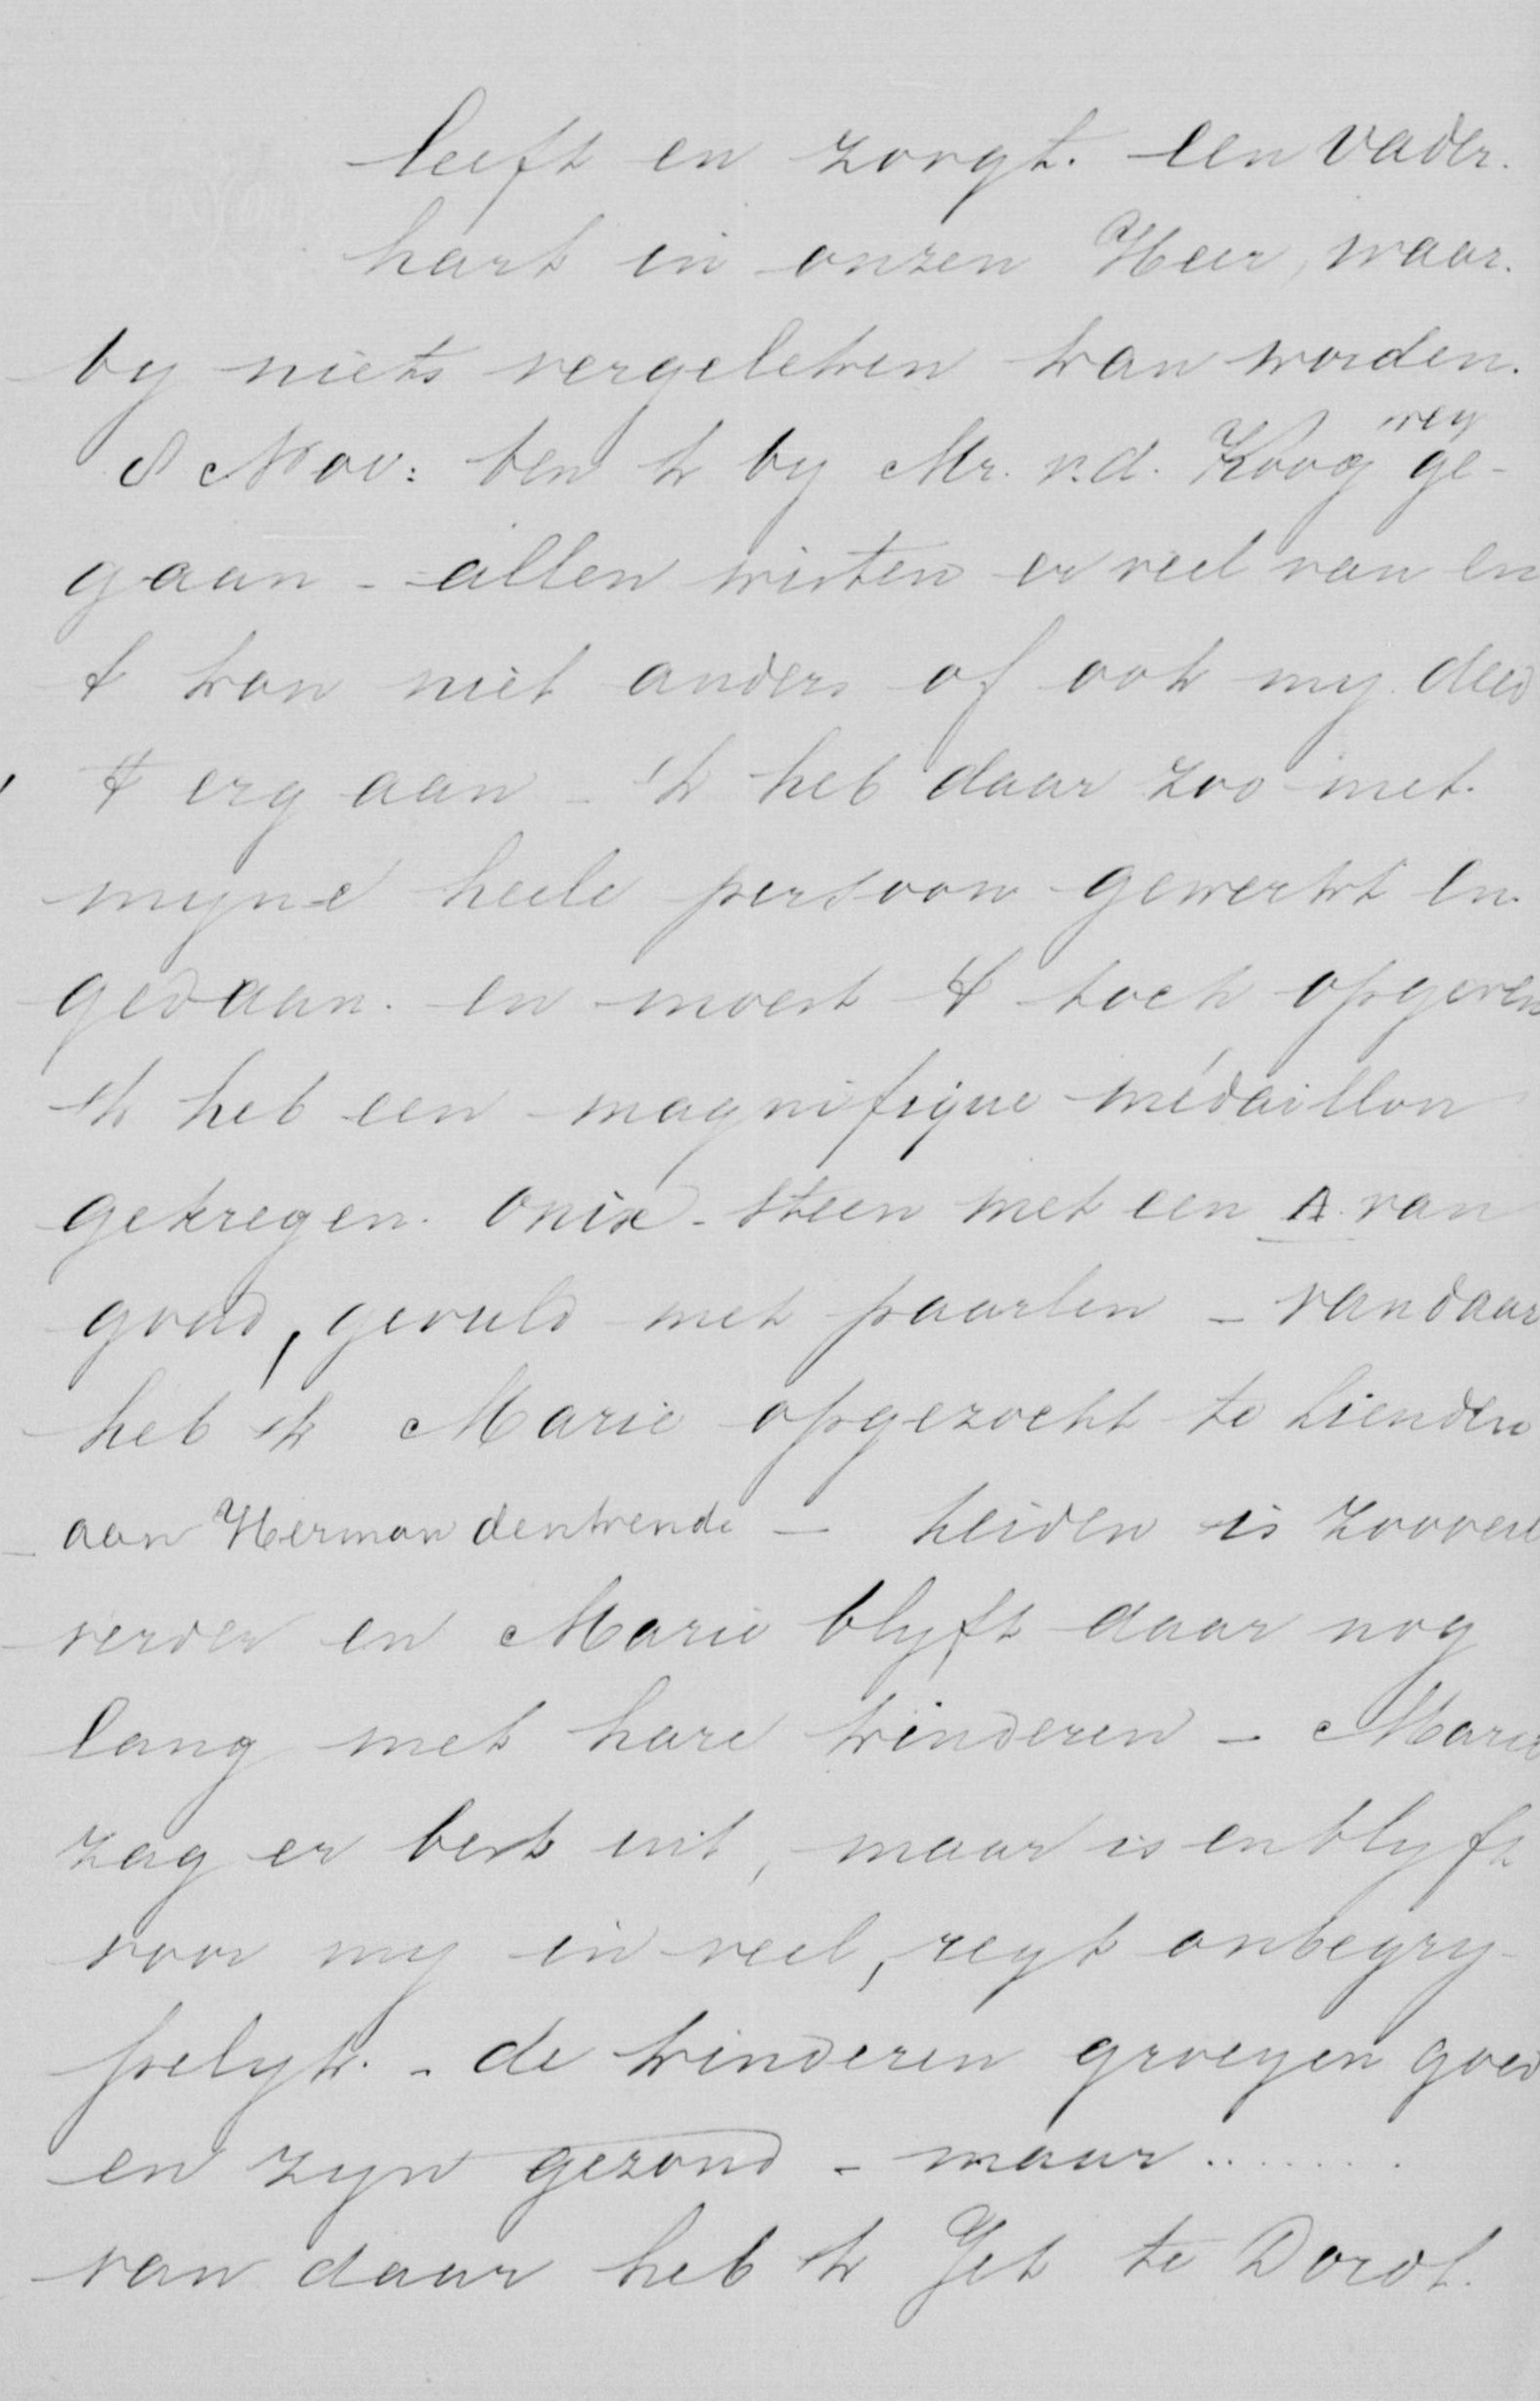 leeft en zorgt. een vader.
hart in onzen Heer, waar.
by niets vergeleken kan worden.
8 Nov: ben ik by Mr. v.d. Koog weg ge-
gaan - allen wisten er veel van en
't kon niet anders of ook my deed
't erg aan - ik heb daar zoo met
myne heele persoon gewerkt en
gedaan. en moest 't toch opgeven
ik heb een magnifique médaillon
gekregen. onix-steen met een A. van
goud, gevuld met paarlen - vandaar
heb ik Marie opgezocht te Lienden
- aan Herman denkende - Leiden is zooveel
verder en Marie blyft daar nog
lang met hare kinderen - Marie
zag er best uit, maar is en blyft
voor my in veel, regt onbegry-
pelyk. - de kinderen groeyen goed
en zyn gezond - maar.......
van daar heb ik Jet te Dordt.